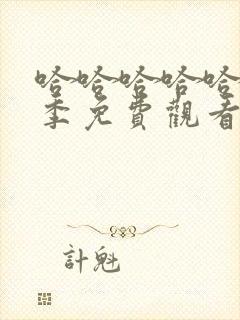 哈哈哈哈哈
季免費觀看
計魁